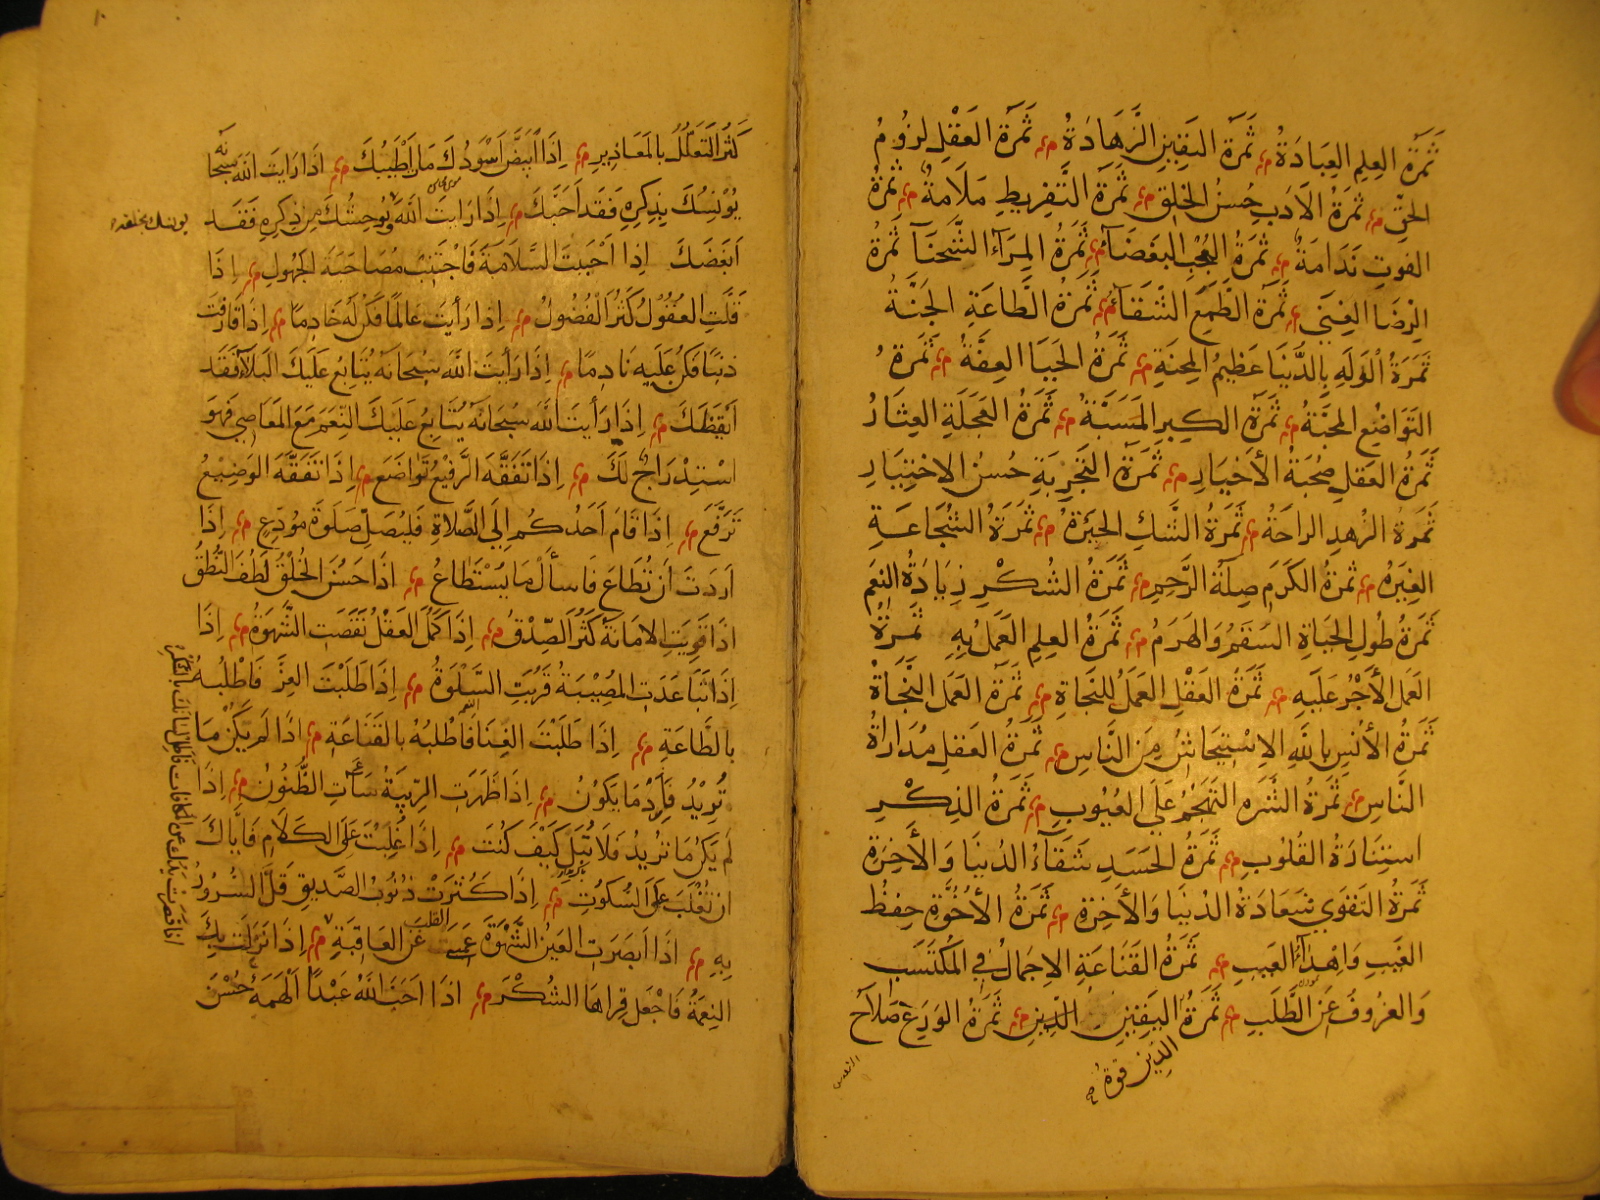 ثَمَرَةُ العِلمِ العِبَادَةُ ثَمَرَةُ اليَقِينِ الزَّهَادَةُ ثَمَرَةُ العَقْلِ لزُومُ
الحَقِّ ثَمَرَةُ الاَدَبِ حُسْنُ الخُلقِ ثَمَرَةُ التَّفرِيطِ مَلَامَةٌ ثَمَرَةُ
الفَوتِ نَدَامَةٌ ثَمَرَةُ العُجْبِ البَغضَاءُ ثَمَرَةُ المِرَآءِ الشَّحنَآ ثَمَرَةُ
الرِّضَا الغِنَى ثَمَرَةُ الطَّمَعِ الشَّقَآءُ ثَمَرَةُ الطَّاعَةِ الجَنَّةُ
ثَمَرَةُ الوَلَهِ بِالدُّنيَا عَظِيمُ المِحنَةِ ثَمَرَةُ الحَيَا العِفَّةُ ثَمَرَةُ
التَوَاضُعِ المحَبَّةُ ثَمَرَةُ الكِبرِ المَسَبَّةُ ثَمَرَةُ العَجَلَةِ العِثَارُ
ثَمَرَةُ العَقلِ صُحْبَةُ الأخيَارِ ثَمَرَةُ التَجرِبَةِ حُسنُ الاختِيَارِ
ثَمَرَةُ الزُهدِ الراحَةُ ثَمَرَةُ الشَّكِ الحَيرَةُ ثَمَرَةُ الشَجَاعَةِ
الغَيرَةُ ثَمَرَةُ الكَرَمِ صِلَةُ الرَّحِمِ ثَمَرَةُ الشُكْرِ زِيَادَةُ النِعَم
ثَمَرَةُ طُولِ الحَيَاةِ السَقَمُ وَالهَرَمُ ثَمَرَةُ العِلمِ العَمَلُ بِهِ ثَمَرَةُ
العَمَلِ الأَجْرُ عَلَيهِ ثَمَرَةُ العَقْلِ العَمَلُ لِلنَجَاةِ ثَمَرَةُ العَمَلِ النَجَاةُ
ثَمَرَةُ الأُنسِ بِاللَّهِ الاِسْتِيحَاشُ مِنَ النَّاسِ ثَمَرَةُ العَقلِ مُدَارَاةُ
النَّاسِ ثَمَرَةُ الشَرَهِ التَهَجُمُ عَلَى العُيُوبِ ثَمَرَةُ الذِكْرِ
استِنَارَةُ القُلُوبِ ثَمَرَةُ الحَسَدِ شَقَاءُ الدُنيَا وَالأَخِرَةِ
ثَمَرَةُ التَقوَى سَعَادَةُ الدُنيَا وَالأَخِرَةِ ثَمَرَةُ الأُخُوَّةِ حِفظُ
الغَيبِ وَاهدَآءُ العَيبِ ثَمَرَةُ القَنَاعَةِ الاِجمَالُ فِي المُكتَسَبِ
وَالعُزُوفُ عَنِ الطَّلَبِ ثَمَرَةُ اليَقِينِ الدِّينِ ثَمَرَةُ الوَرَعِ صَلَاحُ
الدِين قوة
كَثُرَ التَعَلُّلُ بالمَعَاذِيرِ اِذَا اَبيَضَّ اَسْوَدُكَ مَاتَ اَطْيَبُكَ اذَا رَايتَ اللهَ سُبحانَه
يُوْنِسُكَ بِذِكرِهِ فَقَد اَحَبَّكَ اِذَا رَايتَ اللهَ يُوحِشُكَ مِن ذِكرِهِ فَقَد
يونسك بخلقه
اَبغَضَكَ اِذا اَحْبَبتَ السَّلَامَةَ فَاجْتَنِبْ مُصَاحَبَةَ الجَهُولِ اِذَا
قَلَّتِ العُقُوْلُ كَثُرَ الْفُضُولُ اِذَا رَأيتَ عَالمًا فكُن لَهُ خَادِمًا اِذَا قَارفتَ
ذنبًا فكُن عَلَيهِ نَادِمًا اِذَا رَأيتَ اللهَ سُبحَانَهُ يُتَابِعُ عَلَيكَ البَلَآءَ فَقَد
اَيقَظَكَ اِذَا رَأيتَ اللهَ سُبحَانَهُ يُتَابِعُ عَلَيكَ النِّعَمَ مَعَ المَعَاصِي فَهوَ
اسْتِدْرَاجٌ لَكَ اِذَا تَفَقَّهَ الرَفِيعُ تَوَاضَعَ اِذَا تَفَقَّهَ الوَضِيعُ
تَرَفَّعَ اِذَا قَامَ اَحَدُكُم اِلَى الصَّلَاةِ فَليُصَلِّ صَلَوةَ مُودِعٍ اِذَا
اَرَدتَ اَن تُطَاعَ فَاسأَلْ مَا يُسْتَطَاعُ اذَا حَسُنَ الخُلْقُ لَطُفَ النُّطقُ
اذَا قَوِيَتِ الامَانَةُ كَثُرَ الصِّدْقُ اِذَا كَمُلَ العَقْلُ نَقَصَتِ الشَّهوَةُ اِذَا
اِذَا تَبَاعَدَتِ المُصِيْبَةُ قَرُبَتِ السَّلْوَةُ اِذَا طَلَبْتَ العِزَّ فَاطْلُبهُ
بالطَّاعَةِ اِذَا طَلَبْتَ الغِنَا فَاطْلُبْهُ بالقَنَاعَةِ اذَا لَم يَكُنْ مَا
تُرِيْدُ فَاَرِدْ مَا يَكُوْنُ اِذَا ظَهَرَتِ الرِّيبَةُ سَآءتِ الظُّنُوْنُ اِذَا
لَم يَكُن مَا تُرِيدُ فَلَا تُبَلْ كَيْفَ كُنتَ اِذَا غُلِبْتَ عَلَى الكَلَامِ فَايّاكَ
ان تُغْلَبَ عَلَى السُكُوْتِ اِذَا كَثُرَتْ ذنُوبُ الصَّديقِ قَلَّ السُرُورُ
بِهِ اذَا ابصَرَتِ العَينُ الشَّهْوَةَ عَمِيَ القَلبُ عَنِ العَاقِبَةِ اِذَا نَزَلَتْ بِكَ
النِعمَةُ فَاجْعَل قِرَاهَا الشُكْرَ اذَا اَحَبَّ اللهُ عَبْدًا اَلْهَمَهُ حُسْنَ
اذا قصرت يدك عن المكافات فاطل لسانك بالشكر